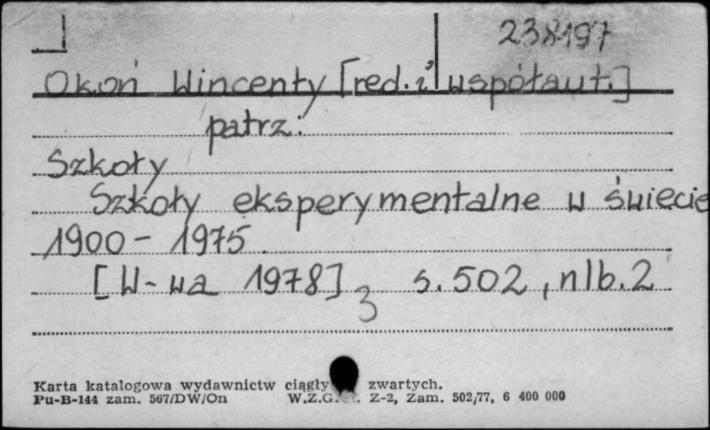 238197
Okoń Wincenty [red. i współaut.]
patrz:
Szkoły
Szkoły eksperymentalne w świecie
1900 - 1975
[W-wa 1978] s. 502, nlb. 2
3
Karta katalogowa wydawnictw ciągły zwartych.
Pu-B-144 zam. 567/DW/On W.Z.G. Z-2, Zam. 502/77, 6 400 000